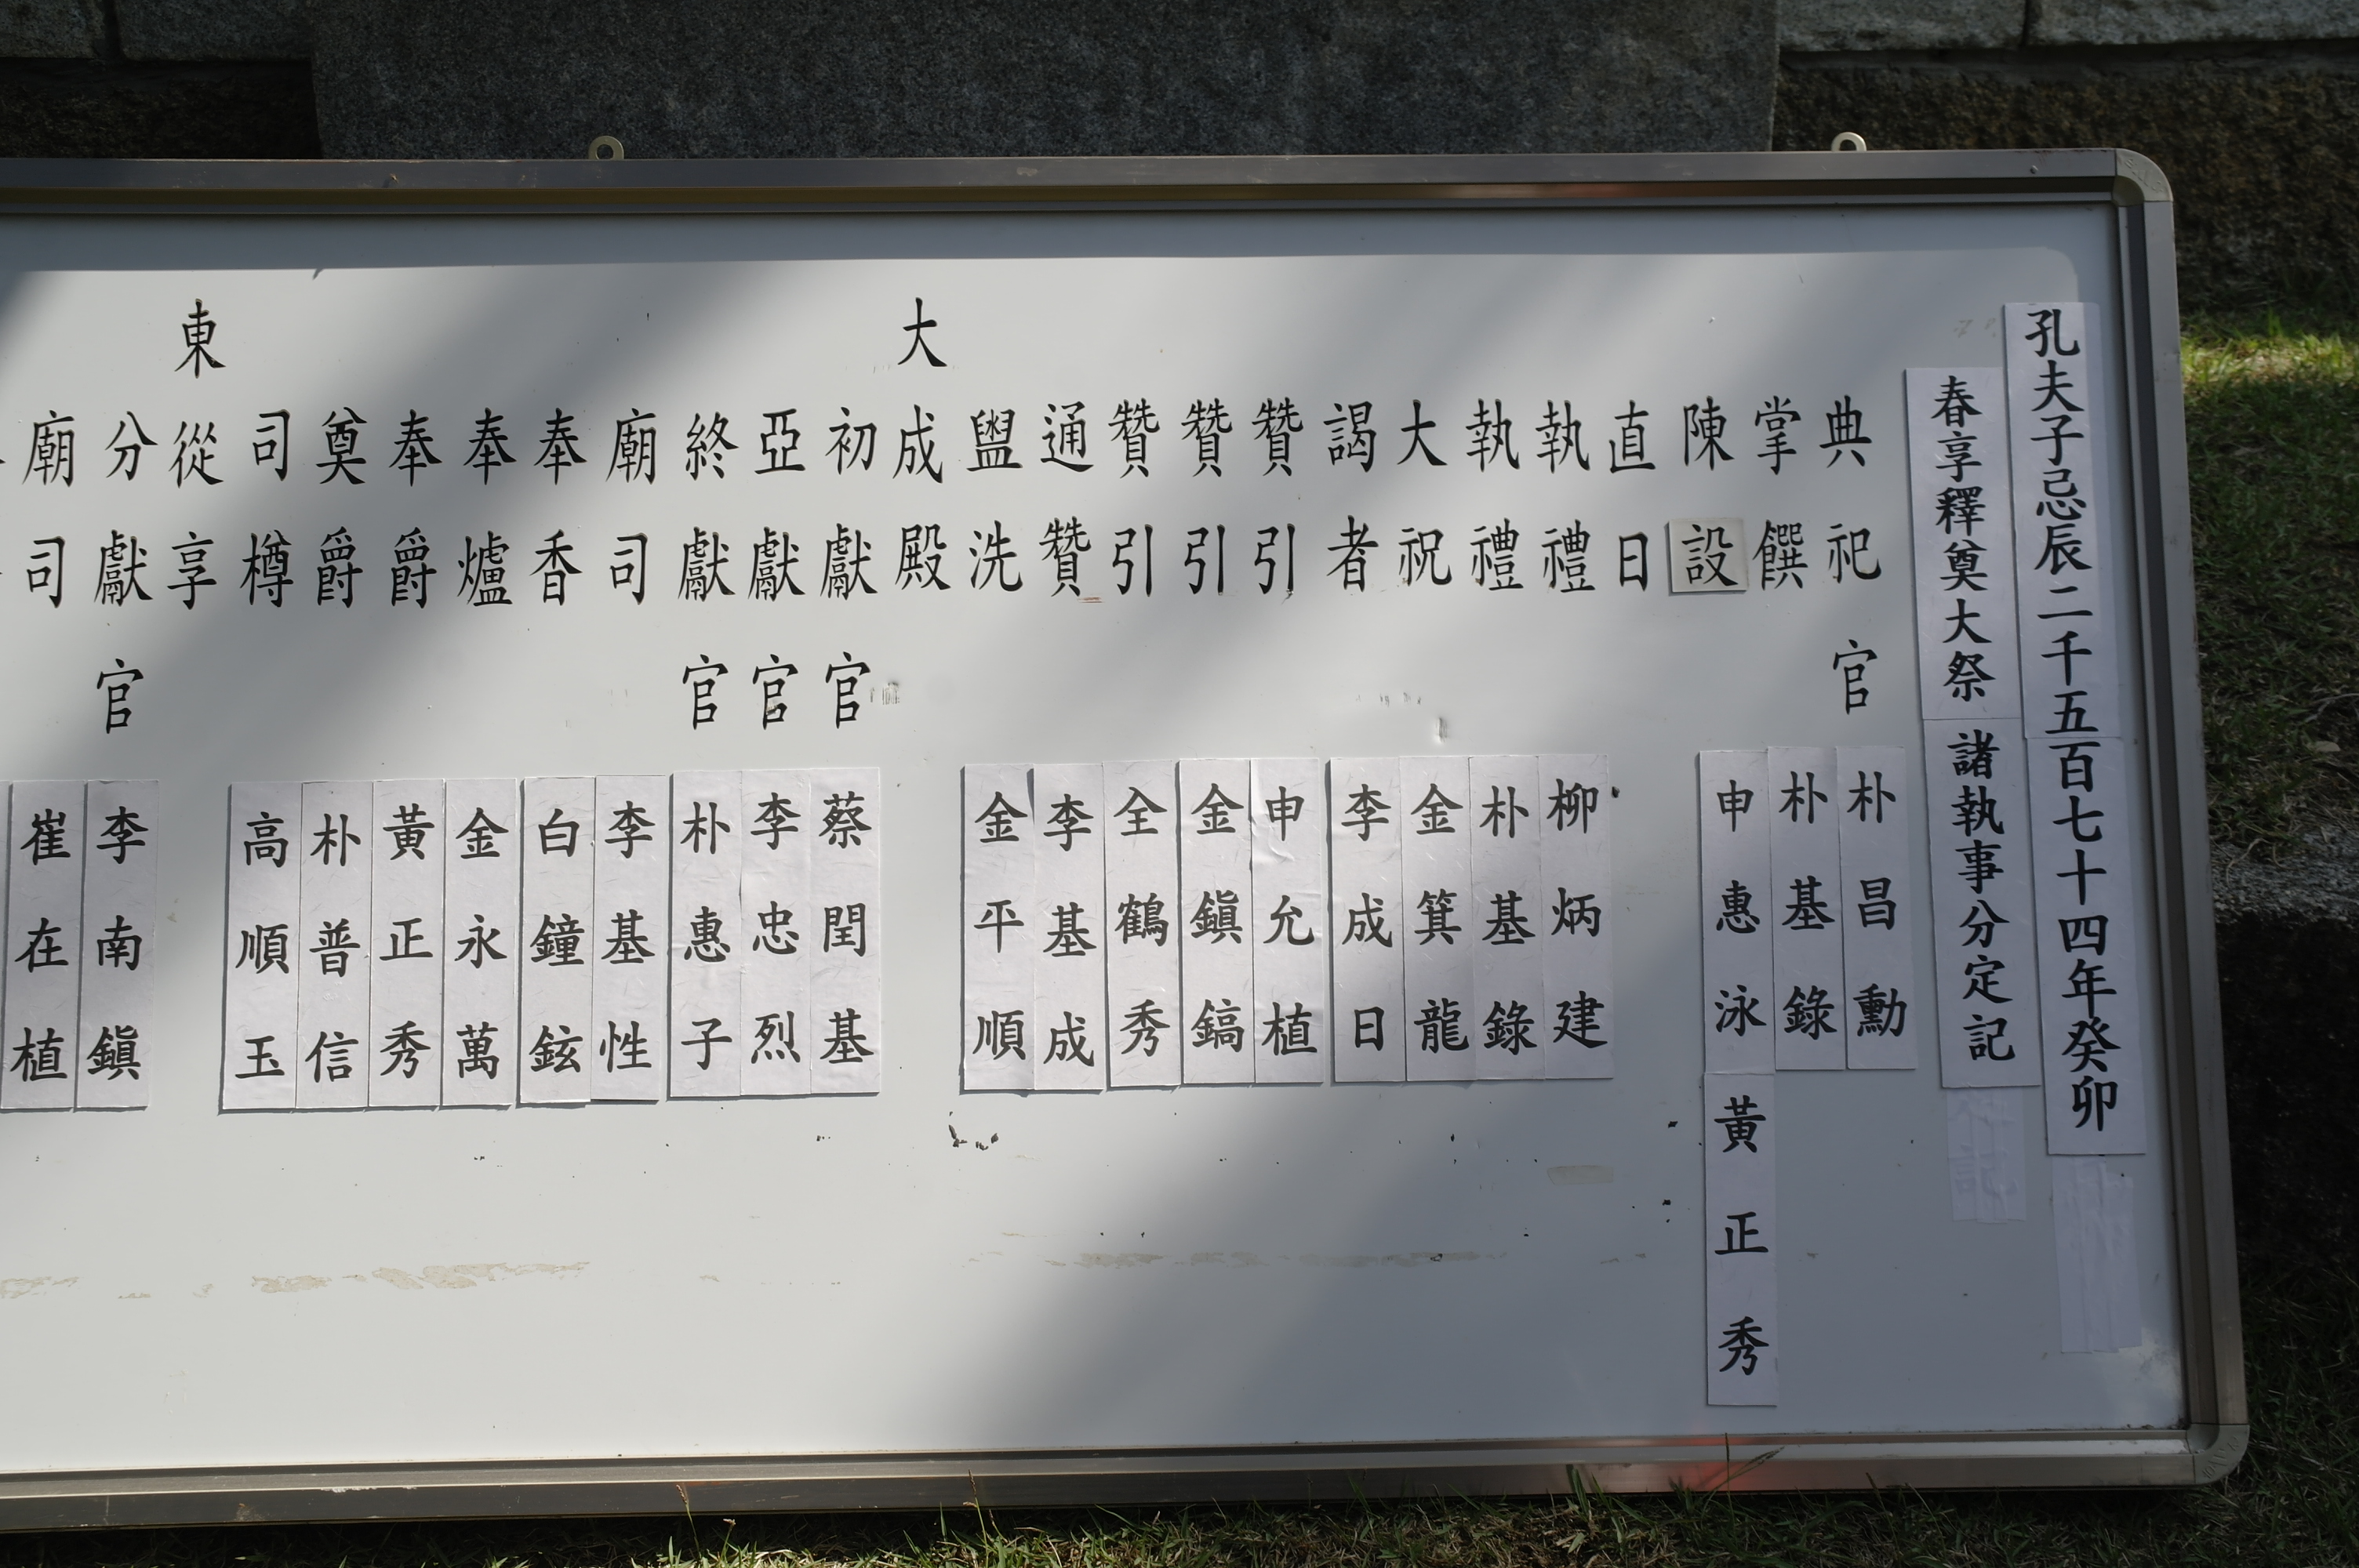 孔夫子忌辰二千五百七十四年癸卯
春享釋奠大祭 諸執事分定記
典祀官 朴昌勳
掌饌 朴基錄
陳設 申惠泳 黃正秀
直日
執禮 柳炳建
執禮 朴基錄
大祝 金箕龍
謁者 李成日
贊引 申允植
贊引 金鎭鎬
贊引 全鶴秀
通贊 李基成
盥洗 金平順
大成殿
初獻官 蔡閏基
亞獻官 李忠烈
終獻官 朴惠子
廟司 李基性
奉香 白鐘鉉
奉爐 金永萬
奉爵 黃正秀
奠爵 朴普信
司樽 高順玉
東從享
分獻官 李南鎭
廟司 崔在植